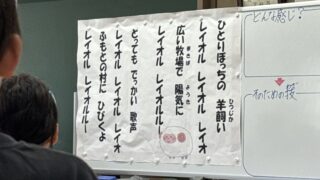 どんな感じ？
ひとりぼっちの 羊飼い
ひつじか
レイオル レイオル レイオ
広い牧場で 陽気に
まきば ようき
レイオル レイオルルー
とっても でっかい 歌声
レイオル レイオル レイオ
ふもとの村に ひびくよ
レイオル レイオルルー
そのための技